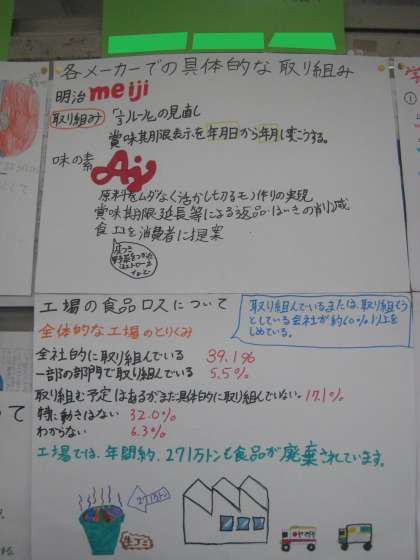 各メーカーでの具体的な取り組み
明治 meiji
取り組み 「1/3ルール」の見直し
賞味期限表示を年月日から年月に変こうする。
味の素 Aji
原料をムダなく活かしきるモノ作りの実現
賞味期限延長等による返品・はいきの削減
食エコを消費者に提案
工場の食品ロスについて
取り組んでいるまたは、取り組もう
としている会社が約60%以上を
しめている。
全体的な工場のとりくみ
全社的に取り組んでいる 39.1%
一部の部門で取り組んでいる 5.5%
取り組む予定はあるがまだ具体的に取り組んでいない。17.1%
特に動きはない 32.0%
わからない 6.3%
工場では、年間約、271万トンも食品が廃棄されています。
271万トン
生ゴミ